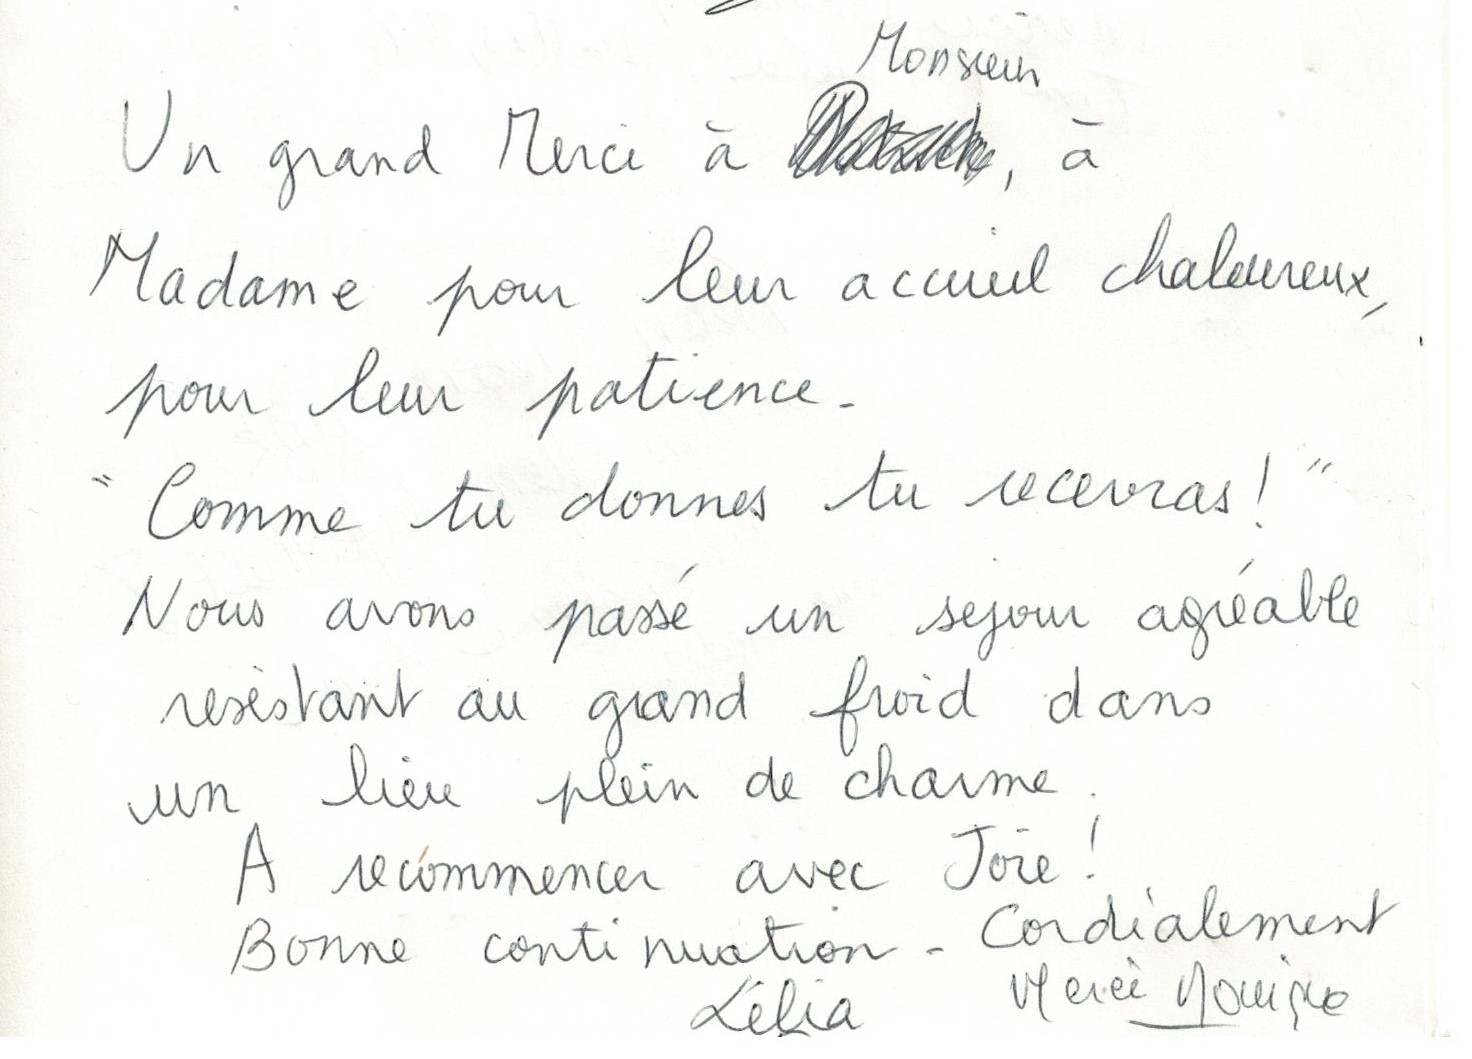 Monsieur
Un grand Merci à , à
Madame pour leur accueil chaleureux,
pour leur patience.
"Comme tu donnes tu recevras!"
Nous avons passé un sejour agréable
resistant au grand froid dans
un lieu plein de charme.
A recommencer avec Joie!
Bonne continuation - Cordialement
Lélia Merci Monique